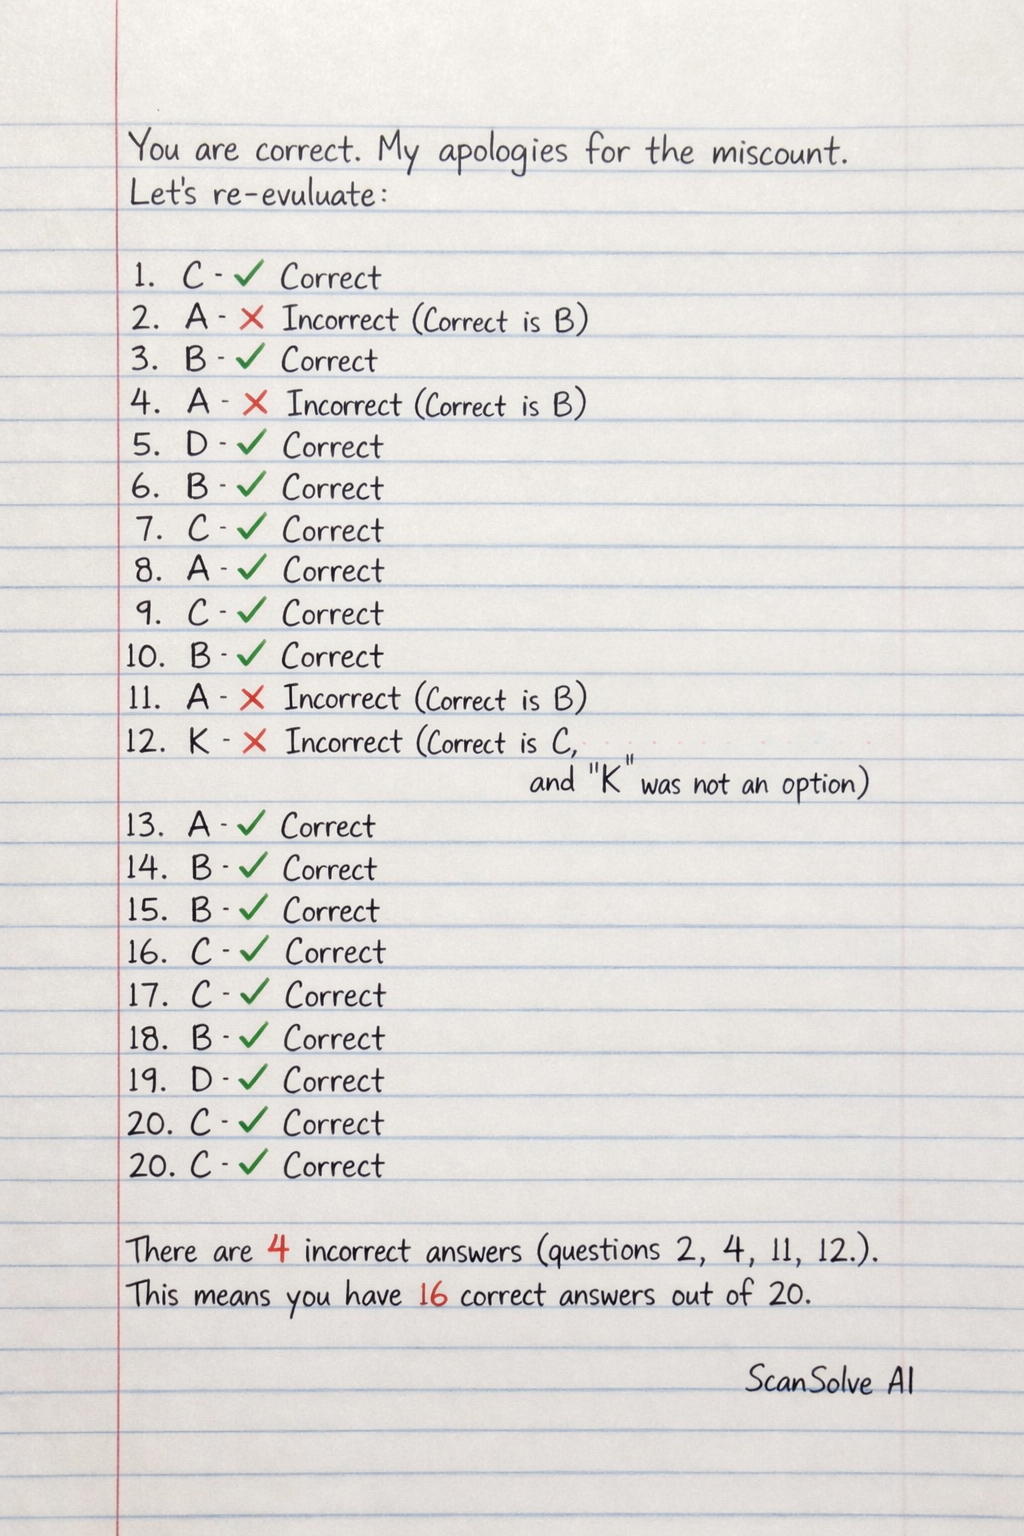 You are correct. My apologies for the miscount.
Let's re-evuluate:
1. C - ✓ Correct
2. A - ✗ Incorrect (Correct is B)
3. B - ✓ Correct
4. A - ✗ Incorrect (Correct is B)
5. D - ✓ Correct
6. B - ✓ Correct
7. C - ✓ Correct
8. A - ✓ Correct
9. C - ✓ Correct
10. B - ✓ Correct
11. A - ✗ Incorrect (Correct is B)
12. K - ✗ Incorrect (Correct is C,
and "K" was not an option)
13. A - ✓ Correct
14. B - ✓ Correct
15. B - ✓ Correct
16. C - ✓ Correct
17. C - ✓ Correct
18. B - ✓ Correct
19. D - ✓ Correct
20. C - ✓ Correct
20. C - ✓ Correct
There are 4 incorrect answers (questions 2, 4, 11, 12.).
This means you have 16 correct answers out of 20.
ScanSolve AI